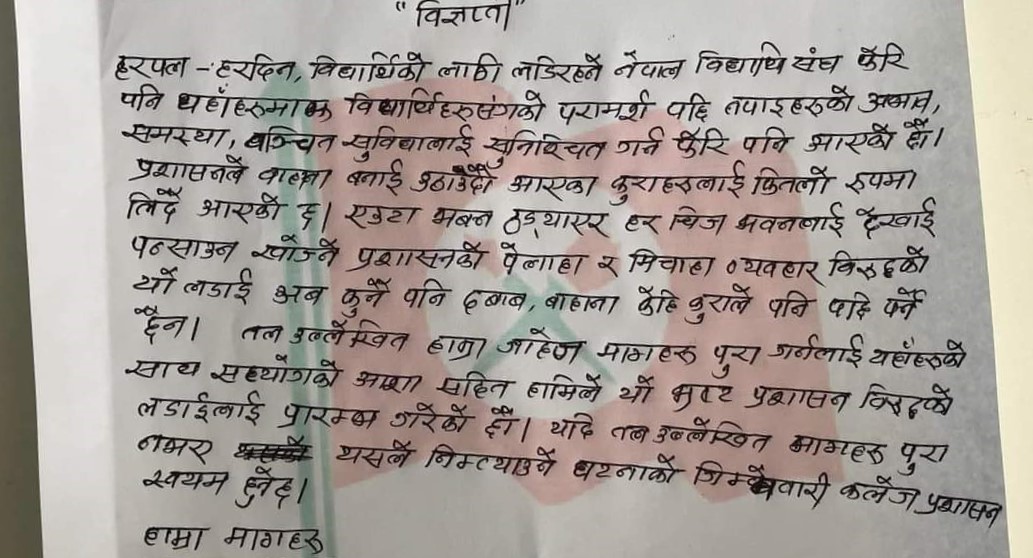 "विज्ञप्ती"
हरपल - हरदिन, विद्यार्थिको लागी लडिरहने नेपाल विद्यार्थि संघ फेरि
पनि यहाँहरुमाझ विद्यार्थिहरुसंगको परामर्श पछि तपाइहरुको अभाव,
समस्या, बञ्चित सुविधालाई सुनिश्चित गर्न फेरि पनि आएको छौ।
प्रशासनले बाहाना बनाई उठाउँदै आएका कुराहरुलाई कितलो रुपमा
लिदै आएको छ। एउटा भबन ठड्याएर हर चिज भवनलाई देखाई
पन्साउन खोज्ने प्रशासनको पेलाहा र मिचाहा व्यवहार विरुद्दको
यो लडाई अब कुनै पनि दबाब, बाहाना केहि कुराले पनि पछि पर्ने
छैन। तल उल्लेखित हाम्रा जाहेज मागहरु पुरा गर्नलाई यहाँहरुको
साथ सहयोगको आशा सहित हामिले यो भ्रष्ट प्रशासन विरुद्दको
लडाईलाई प्रारम्भ गरेको छौ। यदि तल उल्लेखित मागहरु पुरा
नभए यसले निम्त्याउने घटनाको जिम्मेवारी कलेज प्रशासन
स्वयम हुनेछ।
हाम्रा मागहरु